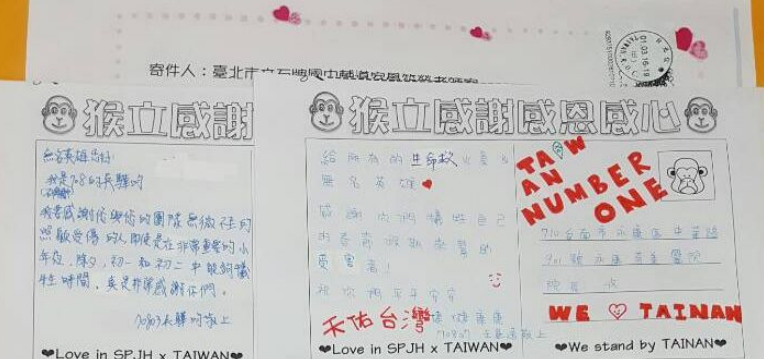 寄件人：臺北市立石牌國中
猴立感謝
猴立感謝感恩感心
無名英雄您好:
我是708的
我要感謝您與您的團隊無微不至的
照顧受傷的人,即使是在非常重要的小
年夜、除夕、初一和初二中能夠犧
牲時間,真是非常感謝你們。
敬上
♥Love in SPJH x TAIWAN♥
給所有的生命救
無名英雄♥
感謝你們犧牲自己
的春節假期來幫助
受害者!
祝你們平平安安
天佑台灣
敬上
♥Love in SPJH x TAIWAN♥
TAIWAN
NUMBER
ONE
710台南市永康區中華路
901號永康奇美醫院
院長 收
WE ♡ TAINAN
♥We stand by TAINAN♥